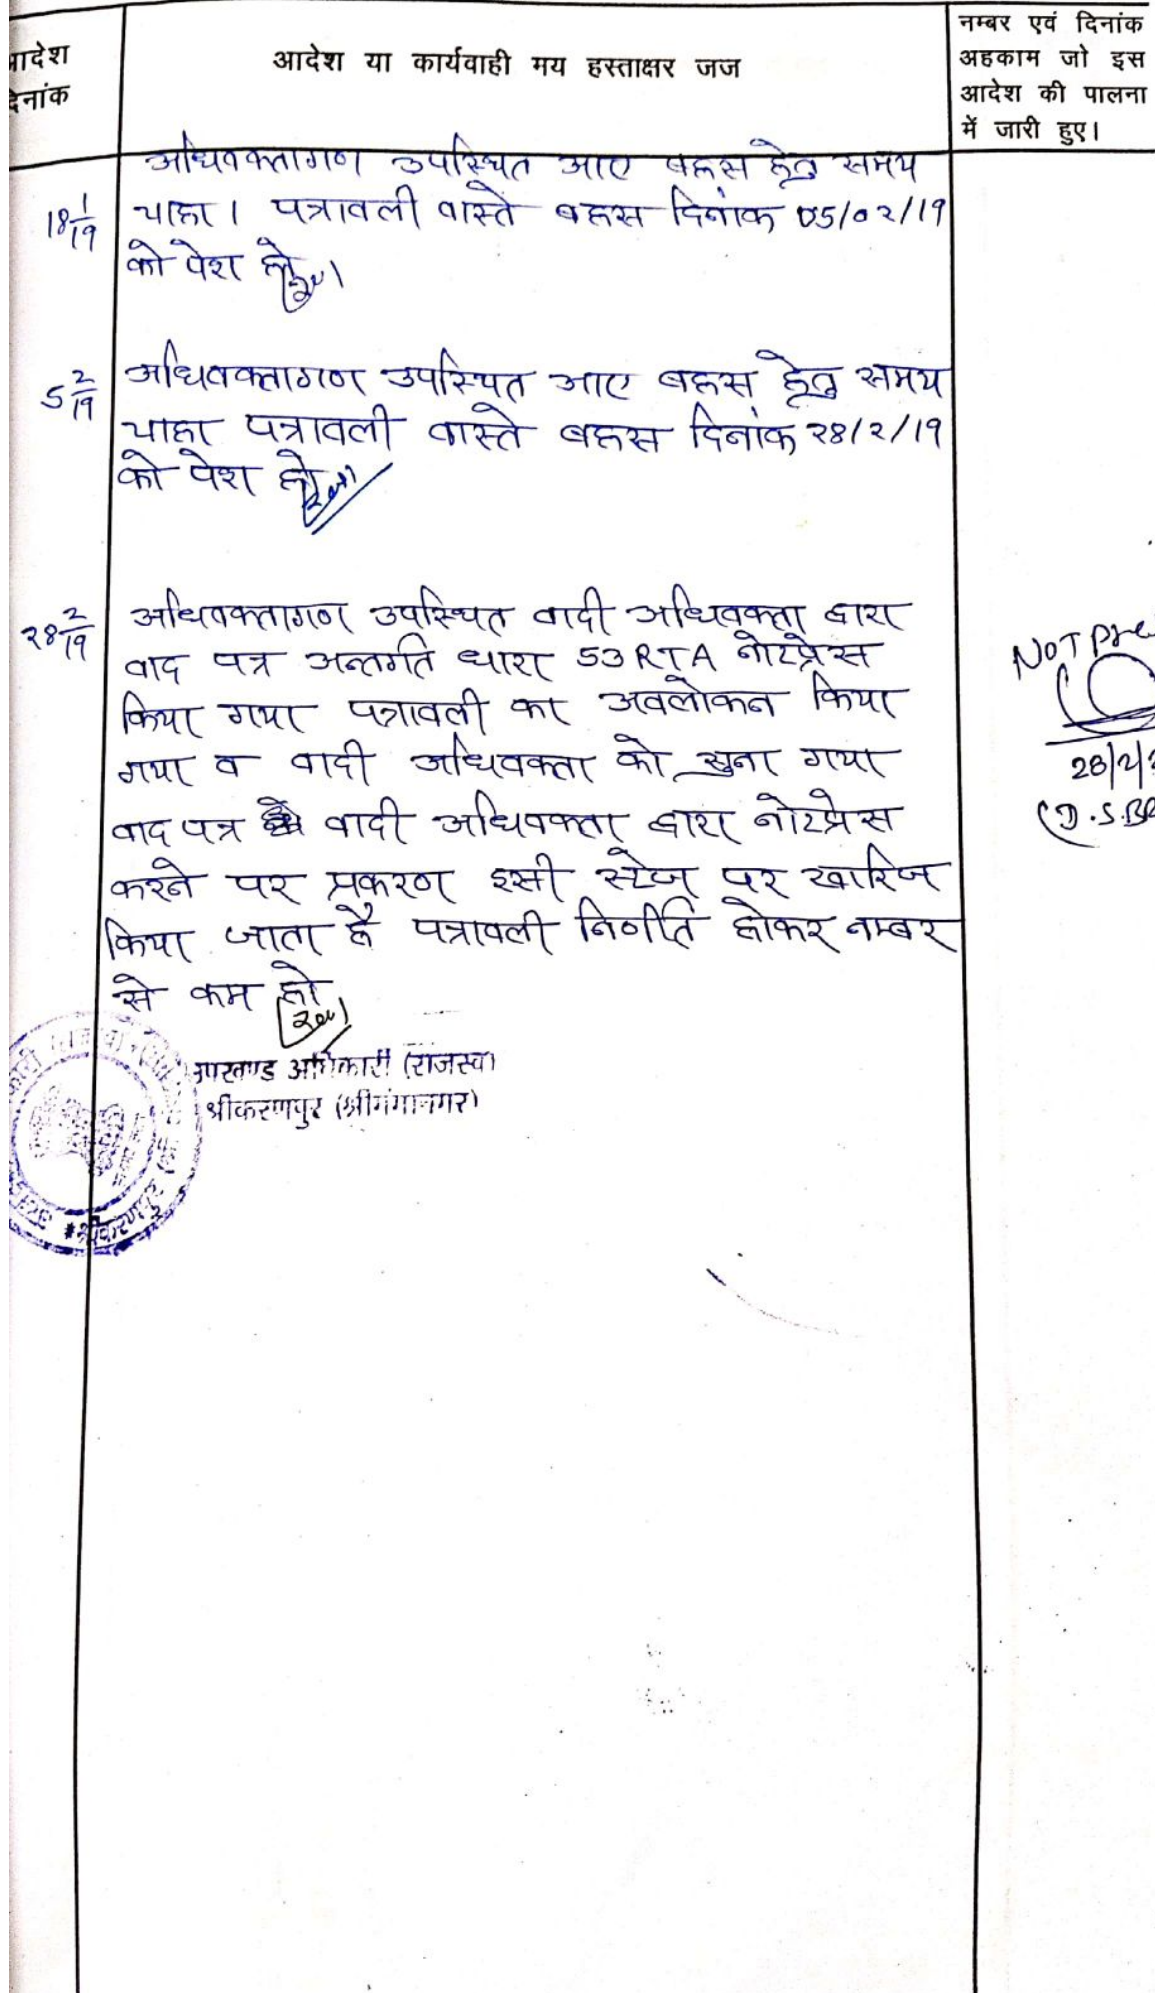 आदेश या कार्यवाही मय हस्ताक्षर जज
नम्बर एवं दिनांक
अहकाम जो इस
आदेश की पालना
में जारी हुए।
18 1/19
अधिवक्तागण उपस्थित आए बहस हेतु समय
चाहा। पत्रावली वास्ते बहस दिनांक 05/02/19
को पेश हो।
5 2/19
अधिवक्तागण उपस्थित आए बहस हेतु समय
चाहा पत्रावली वास्ते बहस दिनांक २8/२/19
को पेश हो
२8 2/19
अधिवक्तागण उपस्थित वादी अधिवक्ता द्वारा
वाद पत्र अन्तर्गत धारा 53 RTA नोटप्रेस
किया गया पत्रावली का अवलोकन किया
गया व वादी अधिवक्ता को सुना गया
वाद पत्र वादी अधिवक्ता द्वारा नोटप्रेस
करने पर प्रकरण इसी स्टेज पर खारिज
किया जाता है पत्रावली निर्णीत होकर नम्बर
से कम हो
उपखण्ड अधिकारी (राजस्व)
श्रीकरणपुर (श्रीगंगानगर)
NOT
28/2/
(D.S.